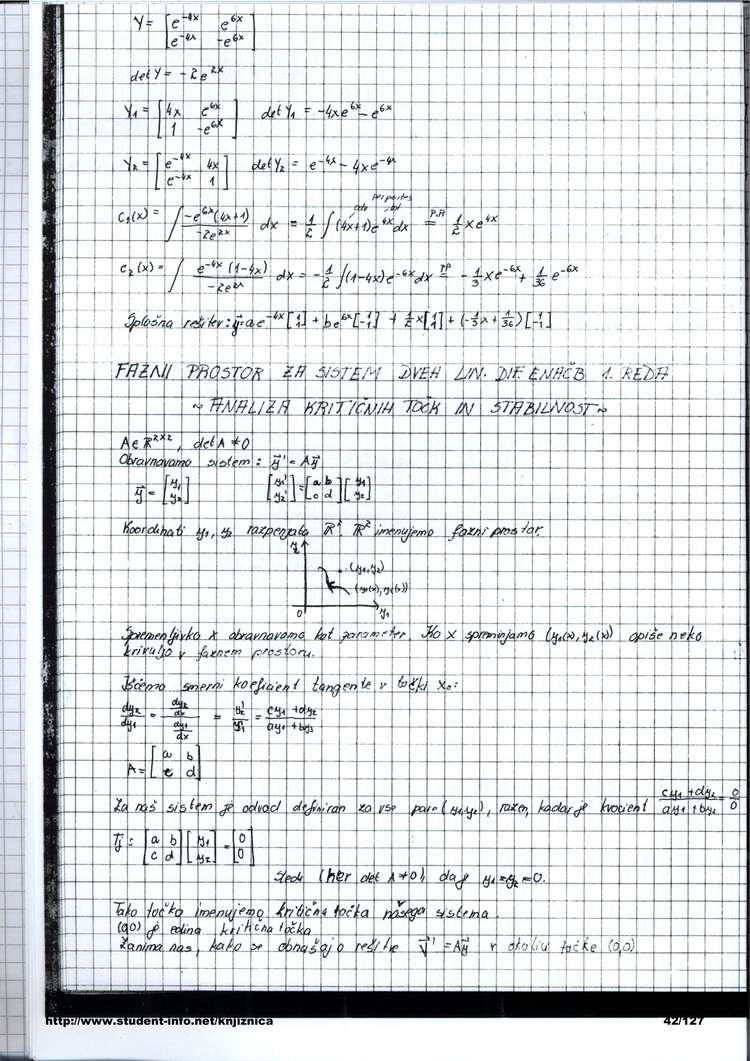 Y = [e^-4x e^6x; e^-4x -e^6x]
det Y = -2e^2x
Y1 = [4x e^6x; 1 -e^6x] det Y1 = -4xe^6x - e^6x
Y2 = [e^-4x 4x; e^-4x 1] det Y2 = e^-4x - 4xe^-4x
per partes
C1(x) = ∫ -e^6x(4x+1) / -2e^2x dx = 1/2 ∫(4x+1)e^4x dx P.P. = 1/2 xe^4x
C2(x) = ∫ e^-4x (1-4x) / -2e^2x dx = -1/2 ∫(1-4x)e^-6x dx PP = -1/3 xe^-6x + 1/36 e^-6x
Splošna rešitev: y⃗ = a e^-4x [1; 1] + b e^6x [1; -1] + 1/2 x [1; 1] + (-1/3 x + 1/36) [1; -1]
FAZNI PROSTOR ZA SISTEM DVEH LIN. DIF. ENAČB 1. REDA
~ ANALIZA KRITIČNIH TOČK IN STABILNOST ~
A ∈ R^2x2, det A ≠ 0
Obravnavamo sistem: y⃗' = Ay⃗
y⃗ = [y1; y2] [y1'; y2'] = [a b; c d] [y1; y2]
Koordinati y1, y2 razpenjata R². R² imenujemo fazni prostor.
y2
(y1, y2)
(y1(x), y2(x))
0 y1
Spremenljivko x obravnavamo kot parameter. Ko x spreminjamo (y1(x), y2(x)) opiše neko
krivuljo v faznem prostoru.
Iščemo smerni koeficient tangente v točki x0:
dy2/dy1 = (dy2/dx)/(dy1/dx) = y2'/y1' = (cy1 + dy2)/(ay1 + by2)
A = [a b; c d]
Za naš sistem je odvod definiran za vse pare (y1, y2), razen, kadar je kvocient (cy1 + dy2)/(ay1 + by2) = 0/0
Tj: [a b; c d] [y1; y2] = [0; 0]
Sledi (ker det A ≠ 0), da je y1 = y2 = 0.
Tako točko imenujemo kritična točka našega sistema.
(0,0) je edina kritična točka
Zanima nas, kako se obnašajo rešitve y⃗' = Ay⃗ v okolici točke (0,0)
http://www.student-info.net/knjiznica
42/127